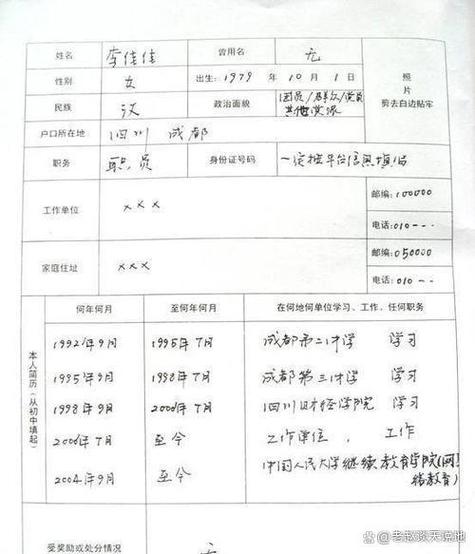 姓名 李佳佳 曾用名 无
性别 女 出生：1979 年 10 月 1 日
照片
剪去白边贴牢
民族 汉 政治面貌 团员/群众/党员
其他党派
户口所在地 四川 成都
职务 职员 身份证号码 一定按平台信息填写
工作单位 ××× 邮编：100000
电话：010---
家庭住址 ××× 邮编：050000
电话：010---
本人简历（从初中填起）
何年何月 至何年何月 在何地何单位学习、工作，任何职务
1992年9月 1995年7月 成都第二中学 学习
1995年9月 1998年7月 成都第三中学 学习
1998年9月 2000年7月 四川财经学院 学习
2000年7月 至今 工作单位 、 工作
2004年9月 至今 中国人民大学继续教育学院(网
络教育)
受奖励或处分情况 无
@老赵谈天说地